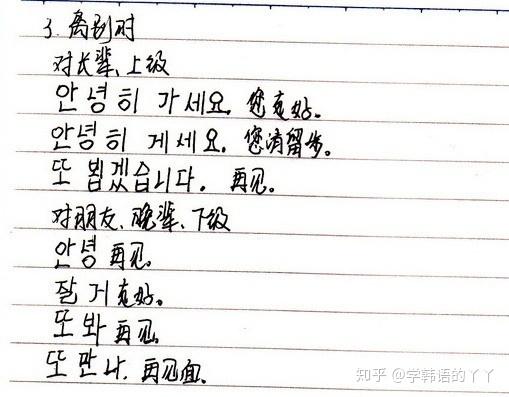 3. 离别时
对长辈、上级
안녕히 가세요. 您走好。
안녕히 게세요. 您请留步。
또 봅겠습니다. 再见。
对朋友、晚辈、下级
안녕 再见.
잘 거 走好。
또 봐 再见.
또 만나. 再见面.
知乎 @学韩语的丫丫